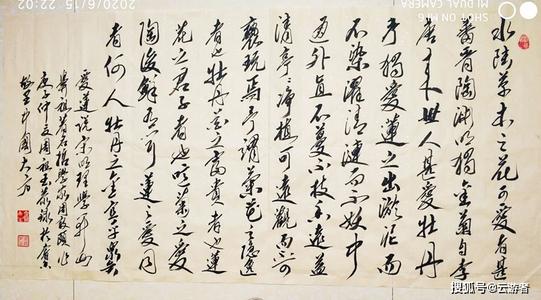 水陸草木之花可愛者甚
蕃晉陶淵明獨愛菊自李
唐来世人甚愛牡丹
予獨愛蓮之出淤泥而
不染濯清漣而不妖中
通外直不蔓不枝香遠益
清亭亭淨植可遠觀而不可
褻玩焉予謂菊花之隱逸
者也牡丹花之富貴者也蓮
花之君子者也噫菊之愛
陶後鮮有聞蓮之愛同
者何人牡丹之愛宜乎衆矣
愛蓮説宋明理學開山
鼻祖著名哲學家周敦頤作
庚子仲夏周祖恭録於
中國大方
2020/6/15 22:02
搜狐号@云游者